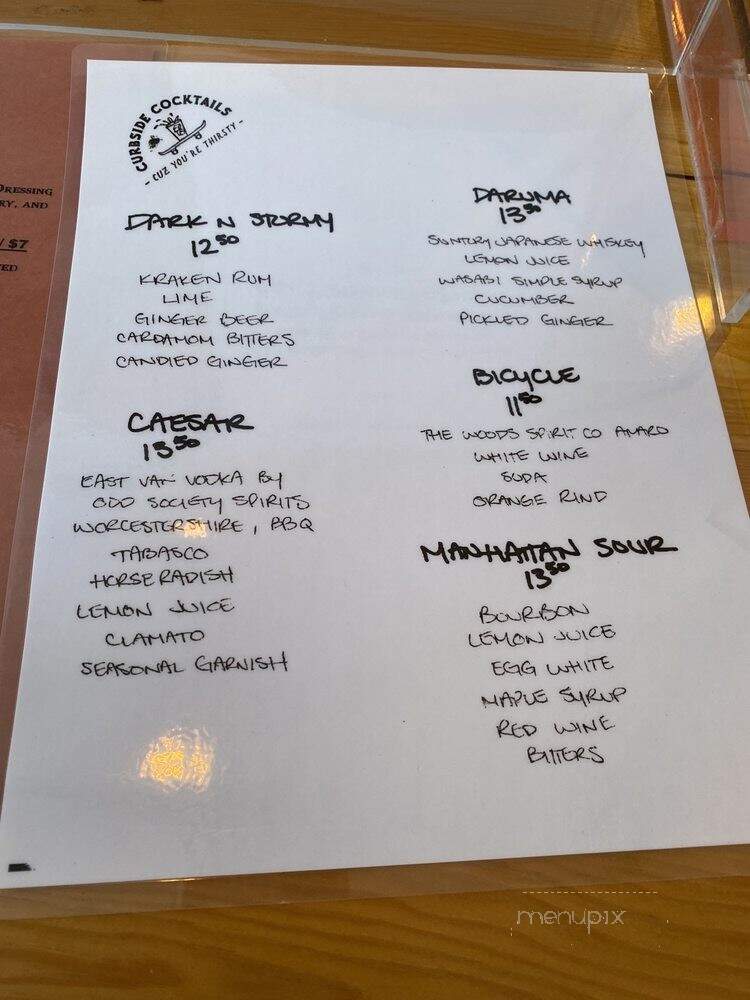 CURBSIDE COCKTAILS
- CUZ YOU'RE THIRSTY -
DRESSING
RY, AND
/ $7
ED
DARK N STORMY
12 50
KRAKEN RUM
LIME
GINGER BEER
CARDAMOM BITTERS
CANDIED GINGER
CAESAR
13 50
EAST VAN VODKA BY
ODD SOCIETY SPIRITS
WORCESTERSHIRE, BBQ
TABASCO
HORSERADISH
LEMON JUICE
CLAMATO
SEASONAL GARNISH
DARUMA
13 50
SUNTORY JAPANESE WHISKEY
LEMON JUICE
WASABI SIMPLE SYRUP
CUCUMBER
PICKLED GINGER
BICYCLE
11 50
THE WOODS SPIRIT CO AMARO
WHITE WINE
SODA
ORANGE RIND
MANHATTAN SOUR
13 50
BOURBON
LEMON JUICE
EGG WHITE
MAPLE SYRUP
RED WINE
BITTERS
menupix